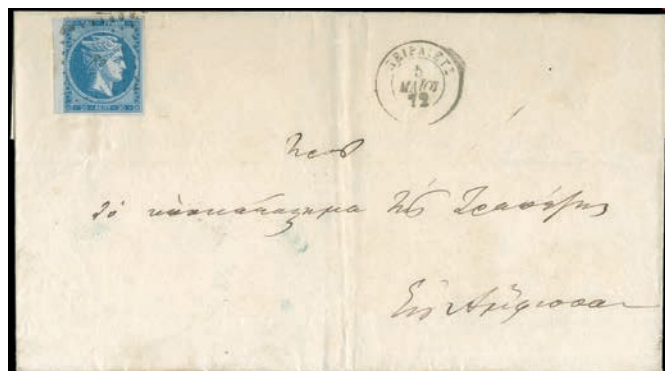 ΠΕΙΡΑΙΕΥΣ
5
ΜΑΪΟΥ
72
Πρὸς
τὸ ὑποκατάστημα τῆς Τραπέζης
Εἰς Ἄμφισσαν